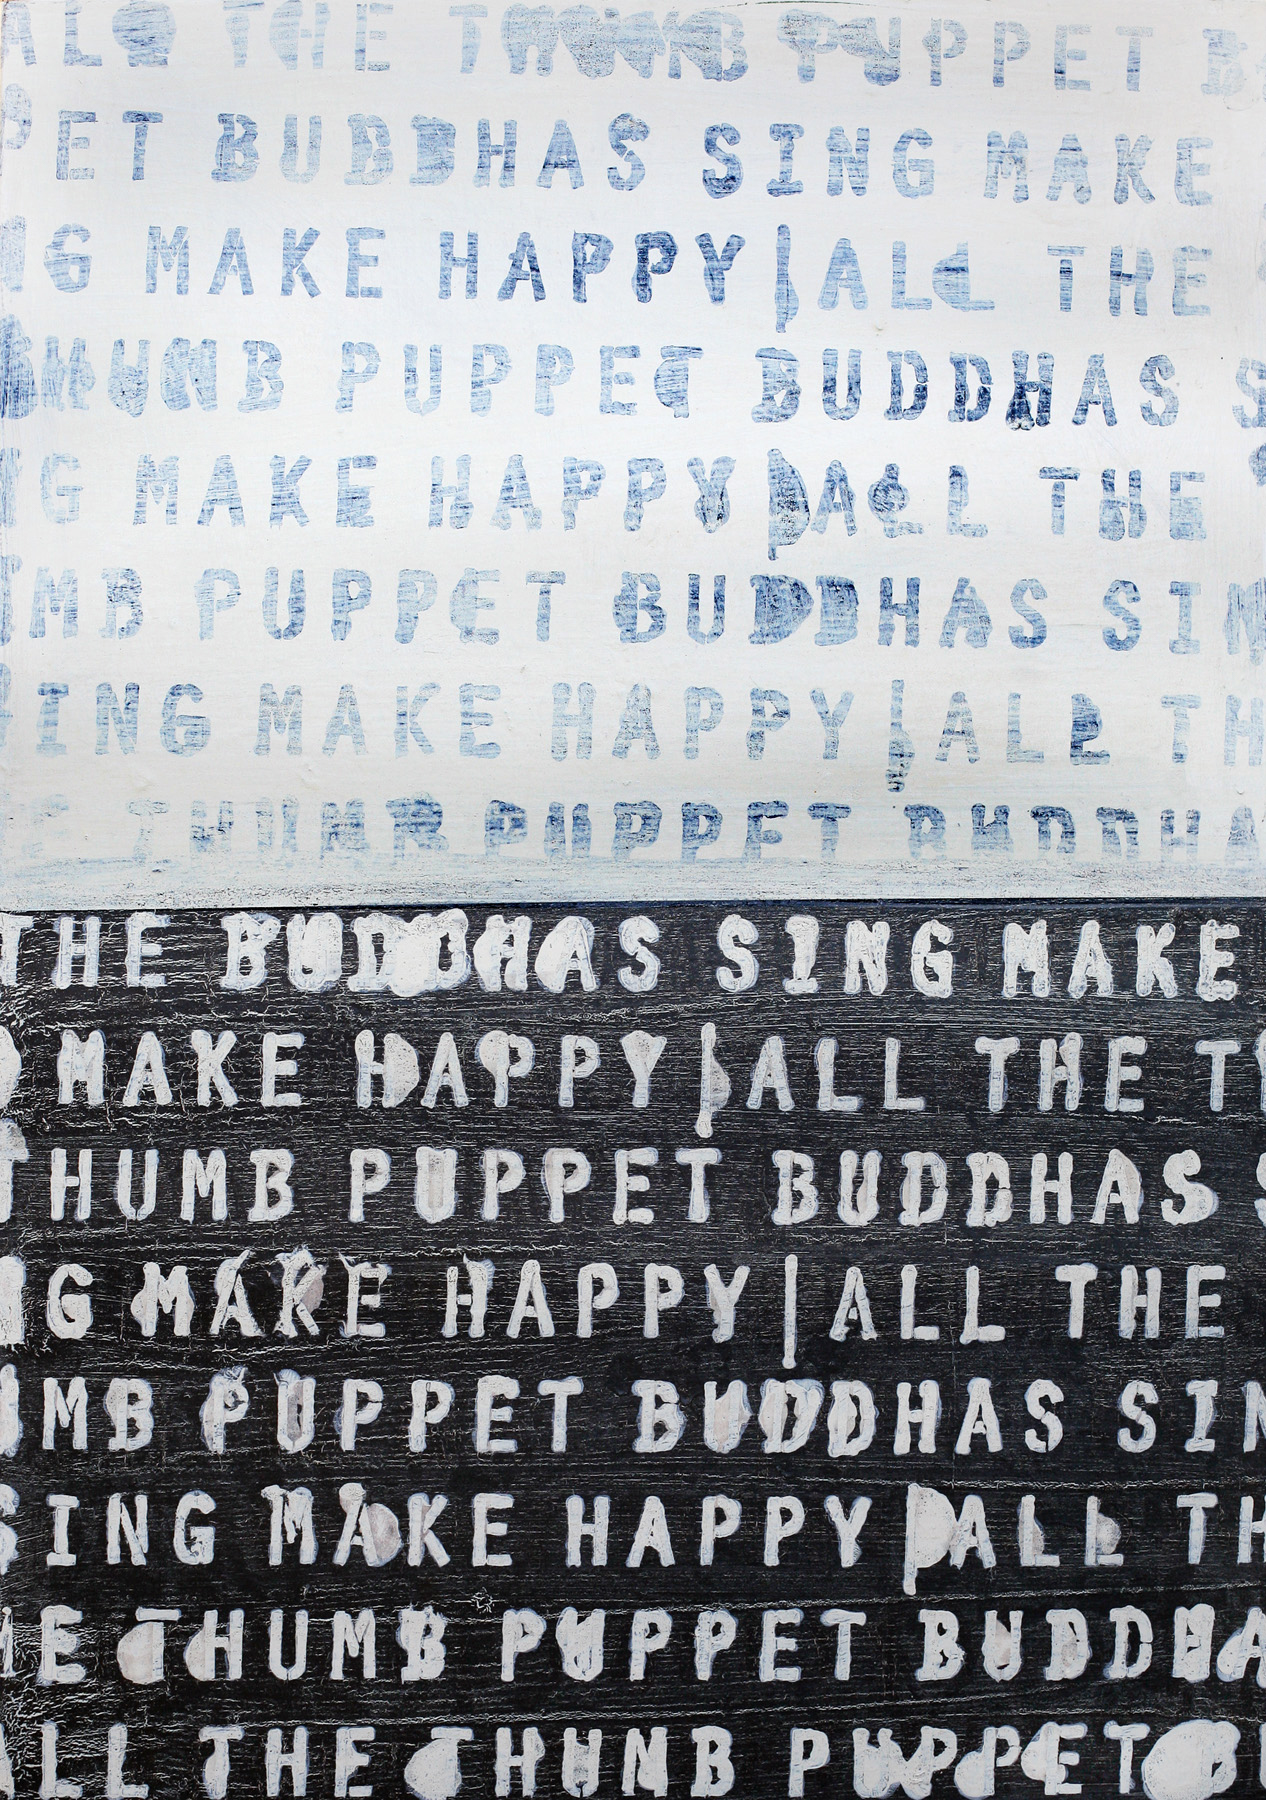 ALL THE THUMB PUPPET B
PET BUDDHAS SING MAKE
NG MAKE HAPPY|ALL THE
THUMB PUPPET BUDDHAS S
NG MAKE HAPPY|ALL THE
UMB PUPPET BUDDHAS SIN
SING MAKE HAPPY|ALL TH
E THUMB PUPPET BUDDHA
THE BUDDHAS SING MAKE
MAKE HAPPY|ALL THE T
THUMB PUPPET BUDDHAS S
NG MAKE HAPPY|ALL THE
UMB PUPPET BUDDHAS SIN
SING MAKE HAPPY|ALL TH
HE THUMB PUPPET BUDDHA
ALL THE THUMB PUPPET B